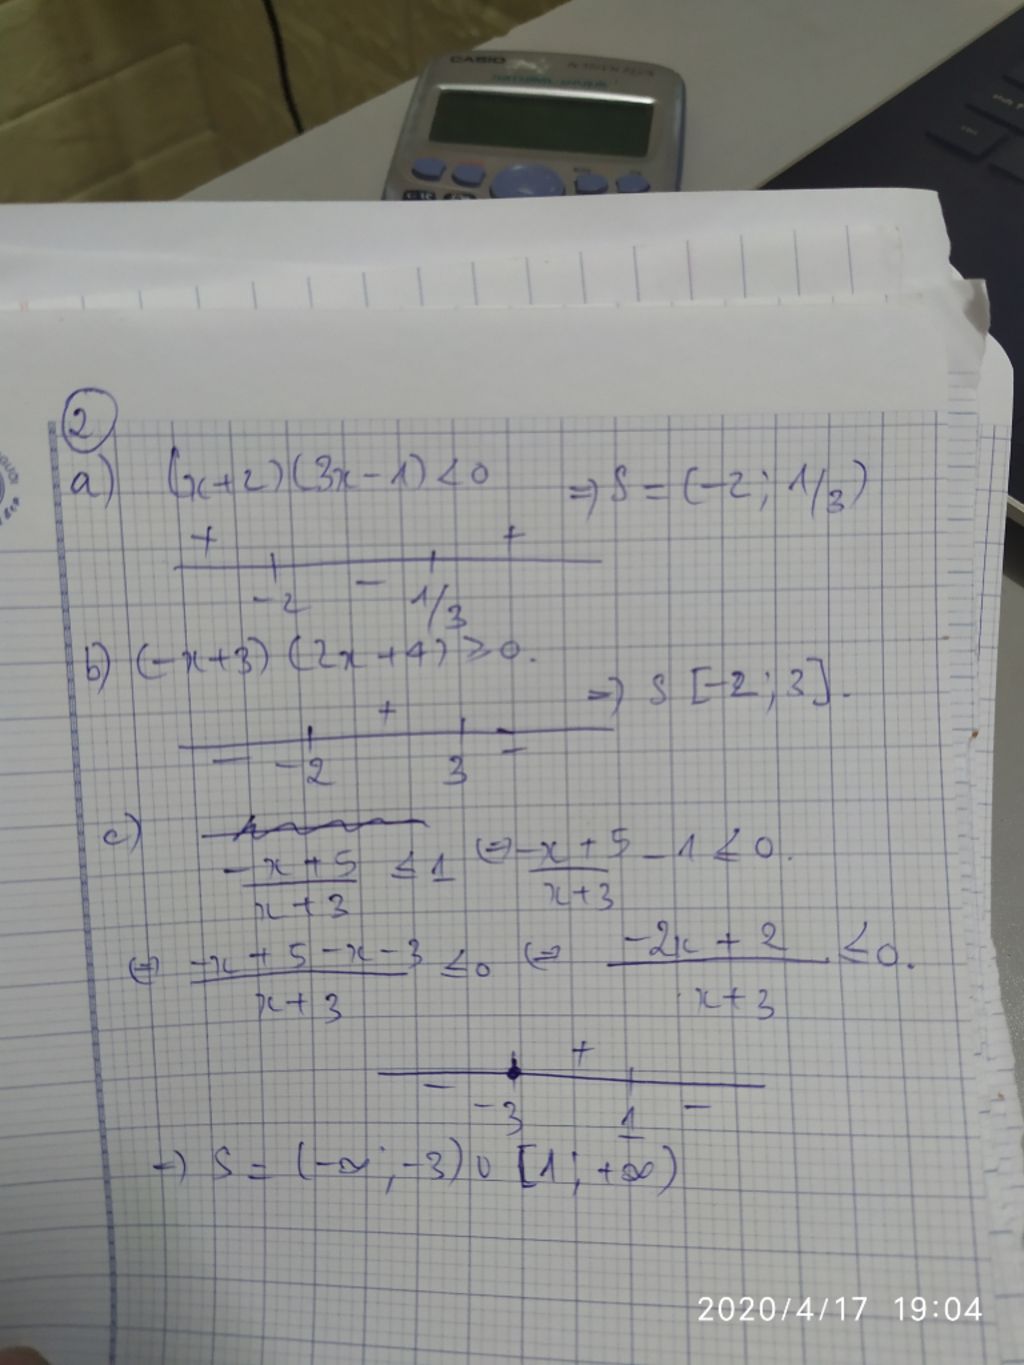 CASIO
2
a) (x+2)(3x-1)<0 => S = (-2; 1/3)
+ - +
-2 1/3
b) (-x+3) (2x+4) ≥ 0.
=> S [-2; 3].
- + -
-2 3
c) (-x+5)/(x+3) ≤ 1 <=> (-x+5)/(x+3) - 1 ≤ 0.
<=> (-x+5-x-3)/(x+3) ≤ 0 <=> (-2x+2)/(x+3) ≤ 0.
- + -
-3 1
=> S = (-∞; -3) ∪ [1; +∞)
2020/4/17 19:04